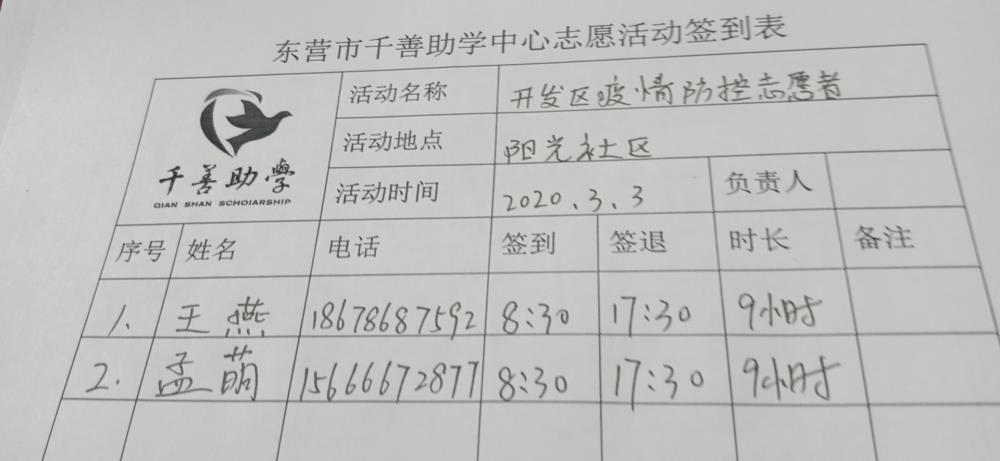 东营市千善助学中心志愿活动签到表
千善助学
QIAN SHAN SCHOIARSHIP
活动名称 开发区疫情防控志愿者
活动地点 阳光社区
活动时间 2020.3.3 负责人
序号 姓名 电话 签到 签退 时长 备注
1. 王燕 18678687592 8:30 17:30 9小时
2. 孟萌 15666672877 8:30 17:30 9小时